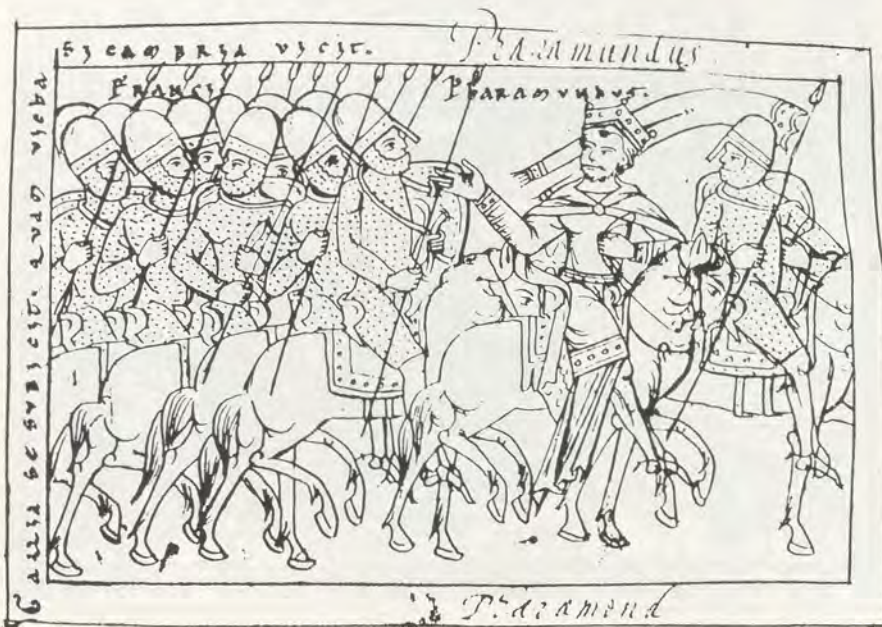 SICAMBRIA VICIT.
Pharamundus
FRANCI
PHARAMUNDUS.
GALLIA SE SUBICIT. QUAM
Pharamond